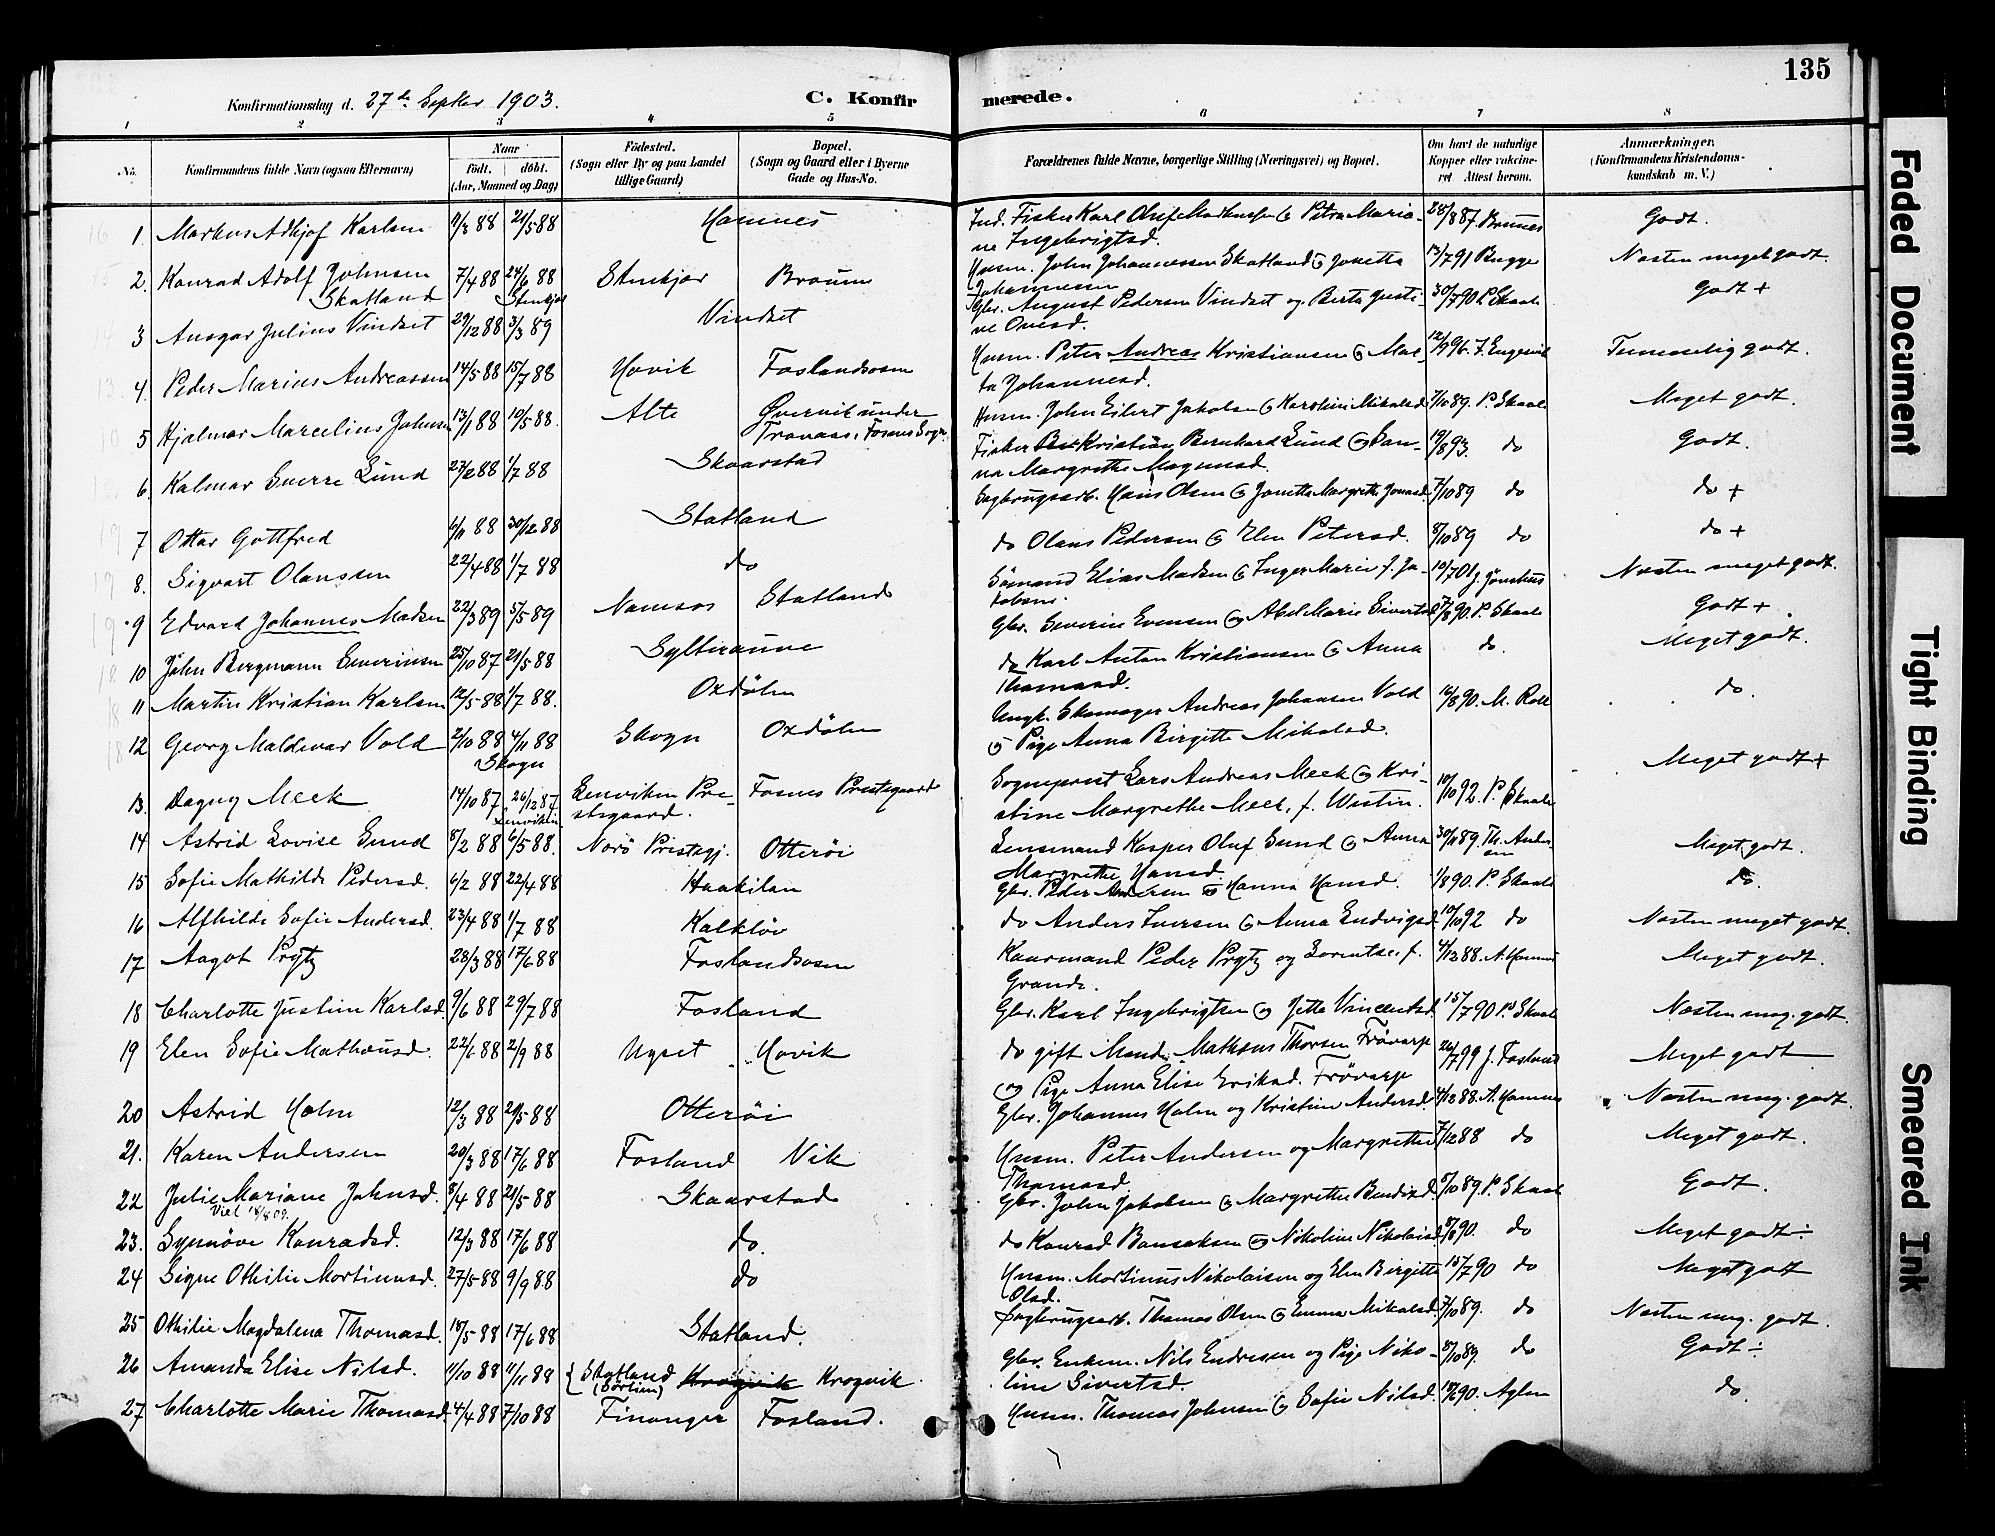 135
Konfirmationsdag d. 27de Septbr. 1903.
C. Konfirmerede.
1 2 3 4 5 6 7 8
No.
Konfirmandens fulde Navn (ogsaa Efternavn)
Naar
født. døbt.
(Aar, Maaned og Dag)
Fødested.
(Sogn eller By og paa Landet
tillige Gaard)
Bopæl.
(Sogn og Gaard eller i Byerne
Gade og Hus-No.
Forældrenes fulde Navne, borgerlige Stilling (Næringsvei) og Bopæl.
Om havt de naturlige
Kopper eller vakcine-
ret Attest herom.
Anmærkninger.
(Konfirmandens Kristendoms-
kundskab m. V.)
1. Markus Karlsen 88 21/5 88 Hamnes Ind. Fisker Karl Oluf & Petra Maria- Godt.
ne Ingebrigtsd.
2. Konrad Adolf Johnsen 7/4 88 24/6 88 Stenkjær Husm. John Johannessen Skatland & Jonetta 13/7 91 Bugge Næsten meget godt.
Skatland Stenkjær Johannessen
3 Ansgar Julius Vindset 29/12 88 3/3 89 Vindset Gbr. August Pedersen Vindset og Berta Justi- 30/7 90 P. Skaale Godt +
ne Ovesd.
4. Peder Marius Andreassen 14/5 88 15/7 88 Hovik Foslandsosen Husm. Peter Andreas Kristiansen & Mar- Temmelig godt.
ta Johannesd.
5 Hjalmar Marcelius Johnsen 13/1 88 10/5 88. Alte Øvervik under Husm. John Eilert Jakobsen & Karoline Mikalsd. 7/10 89. P. Skaale Meget godt.
Fosnes Sogn.
6. Kalmar Sverre Lund 27/2 88 1/7 88 Skaarstad Fisker Kristian Bernhard Lund & 19/8 93. do Godt.
na Margrethe Magnusd.
7 Ottar Gottfred 6/11 88 30/12 88 Statland Sagbrugsarb. Hans Olsen & Jonetta Margrethe Jonasd. 7/10 89 do do +
8. Sigvart Olaussen 22/4 88 1/7 88 do do Olaus Pedersen & Elen Petersd. 8/10 89 do do +
9 Edvard Johannes Madsen 22/3 89 5/5 89 Namsos Statland Sømand Elias Madsen & Inger Marie f. Ja- Næsten meget godt.
kobsen.
10 John Bergmann Severinsen 25/10 87 21/5 88 Sylteraune Gbr. Severin Evensen & Abel Marie Sivertsd. P. Skaale Godt +
11 Martin Kristian Karlsen 12/5 88 1/7 88. Oxdølen do Karl Anton Kristiansen & Anna do. Meget godt.
Thomasd.
12 Georg Maldevar Vold 2/10 88 4/11 88 Skogn Oxdølen Ungk. Skomager Andreas Johansen Vold 16/8 90. M. Roll do.
Skogn & Pige Anna Birgitte Mikalsd.
13. Dagny Meek 14/10 87 26/12 87 Lenviken Pre- Fosnes Prestegaard Sogneprest Lars Andreas Meek & Kri- 10/10 92. P. Skaale Meget godt +
Lenviken stegaard. stine Margrethe Meek, f. Westin.
14 Astrid Lovise Sund 8/2 88 6/5 88. Nærø Prestegj. Otterøi Lensmand Kasper Oluf Sund & Anna 30/11 89. Th. Ander- Meget godt.
sen
Margrethe Hansd.
15 Sofie Mathilde Pedersd. 6/2 88 22/4 88 Haakilan Gbr. Peder Andersen & Hanna Hansd. 1/8 90. P. Skaale do.
16 Alfhilde Sofie Andersd. 23/4 88 1/7 88 Kalkløv do Anders Iversen & Anna Endrigsd. 10/10 92 do Næsten meget godt.
17 Aagot Prytz 28/3 88 17/6 88 Foslandsosen Kaarmand Peder Prytz og Lorentse f. 4/12 88. A. Hamnes Meget godt.
Grande.
18 Charlotte Justine Karlsd. 9/6 88 29/7 88 Fosland Gbr. Karl Ingebrigtsen & Jette Vincentsd. 15/7 90 P. Skaale Næsten meg. godt.
19 Elen Sofie Mathæusd. 22/6 88 2/9 88 Hovik do gift Mand Mathæus Thorsen Frøvarp 26/7 99 J. Fosland Meget godt
og Pige Anna Elise Eriksd. Frøvarp
20 Astrid Holm 12/3 88 21/5 88 Otterøi Gbr. Johannes Holm og Kristine Andersd. 4/12 88. A. Hamnes Næsten meg. godt.
21. Karen Andersen 20/3 88 17/6 88 Fosland Vik Husm. Peter Andersen og Margrethe 7/12 88 do Meget godt.
Thomasd.
22 Julie Mariane Johnsd. 8/4 88 21/5 88 Skaarstad Gbr. John Jakobsen & Margrethe Bendixd. 8/10 89. P. Skaale Godt.
Viel 18/8 09.
23. Synnøve Konradsd. 12/3 88 17/6 88 do. do Konrad Bonsaksen & Nikoline Nikolaisd. do Meget godt ÷
24 Signe Othilie Mortinusd. 27/5 88 9/9 88 do Husm. Mortinus Nikolaisen og Elen Birgitte 15/7 90 do Meget godt
Olsd.
25 Othilie Magdalena Thomasd. 18/5 88 17/6 88 Statland. Sagbrugsarb. Thomas Olsen & Emma Mikalsd. 7/10 89. do Næsten meg. godt.
26 Amanda Elise Nilsd. 11/10 88 11/11 88 Statland Krogvik Krogvik. Gbr. Enkem. Nils Endresen og Pige Niko- 8/10 89. do Godt ÷
(Sørlien) line Sivertsd.
27 Charlotte Marie Thomasd. 4/4 88 7/10 88 Finanger Fosland. Husm. Thomas Johnsen & Sofie Nilsd. Aglen do
Faded Document
Tight Binding
Smeared Ink